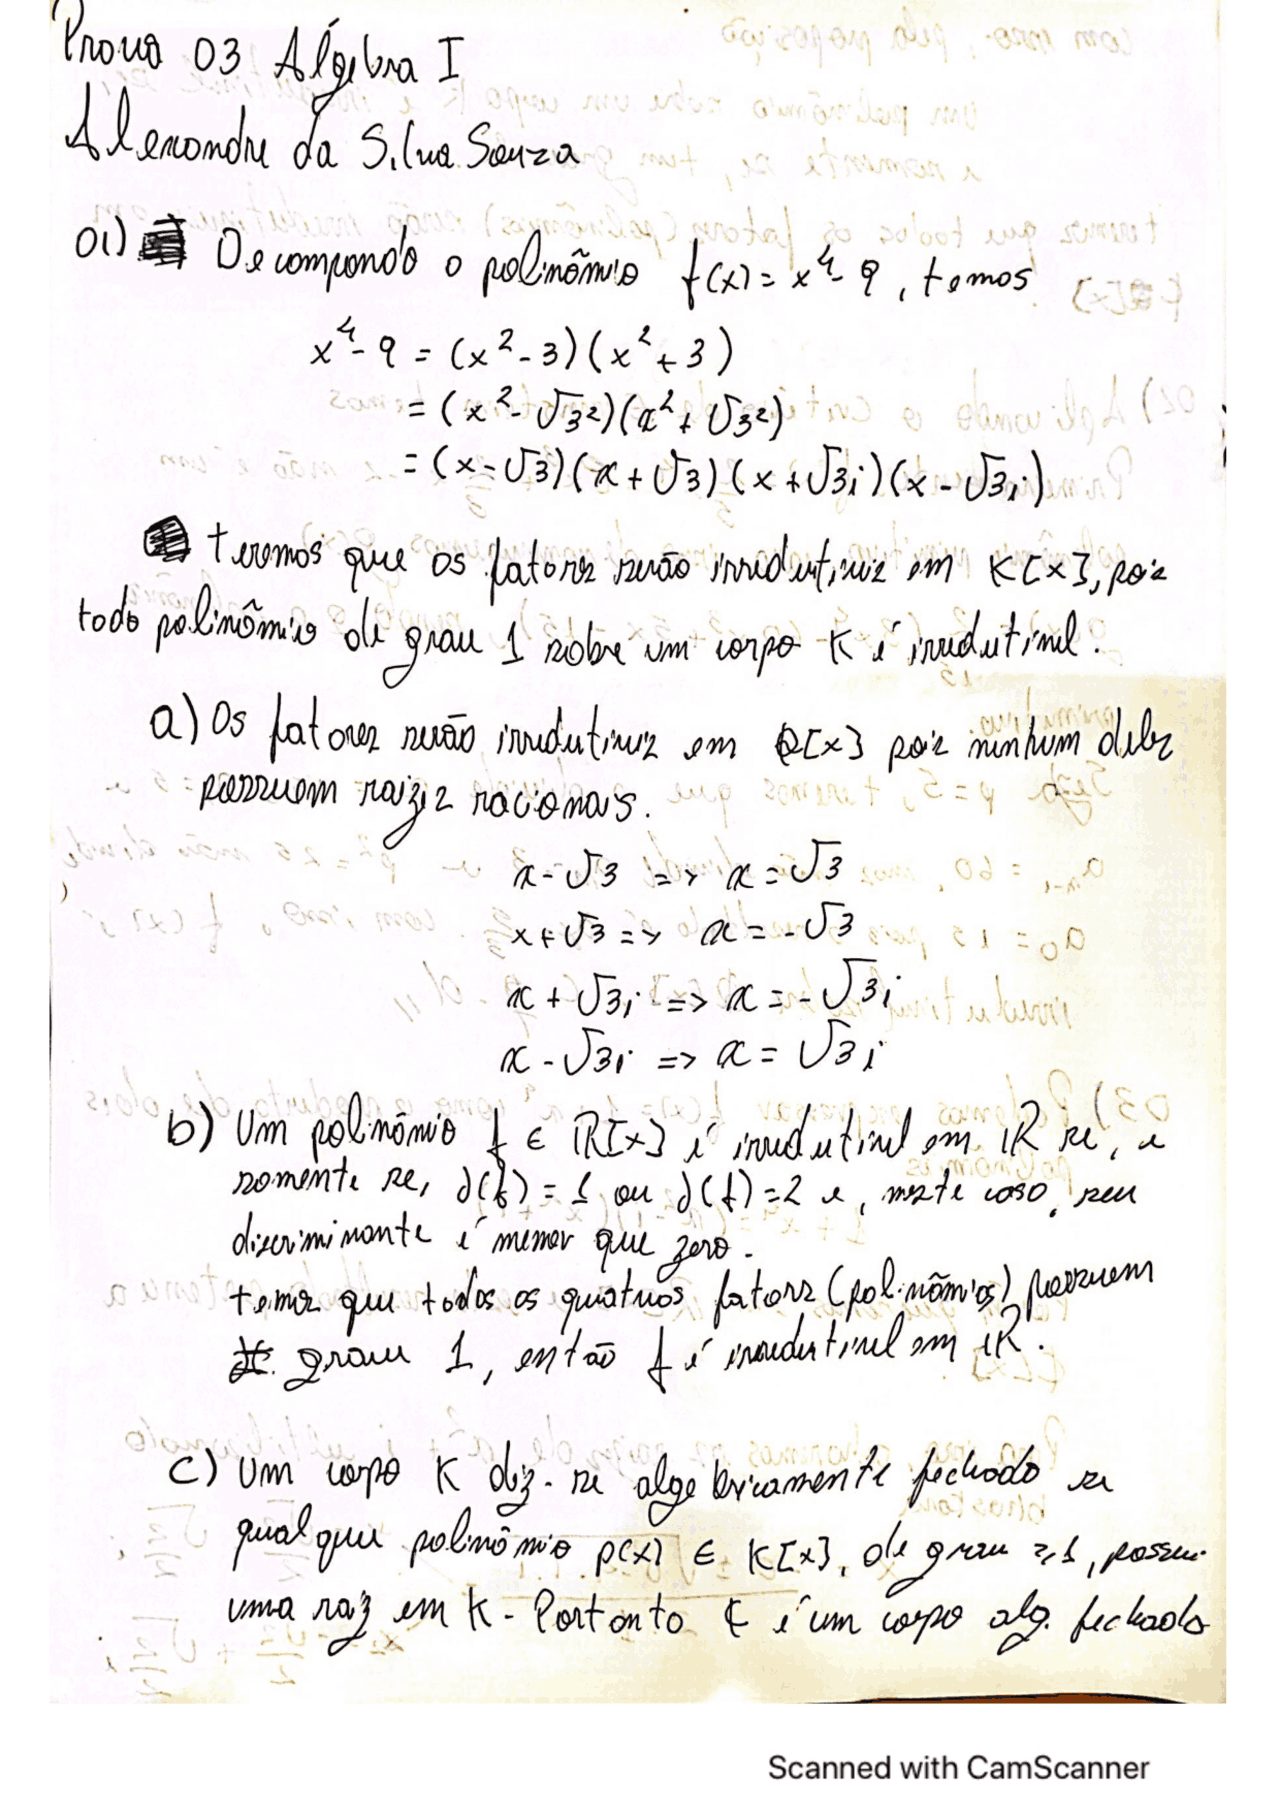 Prova 03 Álgebra I
Alexandre da Silva Souza
01) Decompondo o polinômio f(x) = x⁴ - 9, temos
x⁴ - 9 = (x² - 3)(x² + 3)
= (x² - √3²)(x² + √3²)
= (x - √3)(x + √3)(x + √3i)(x - √3i)
teremos que os fatores serão irredutíveis em K[x], pois
todo polinômio de grau 1 sobre um corpo K é irredutível.
a) Os fatores serão irredutíveis em Q[x] pois nenhum deles
possuem raízes racionais.
x - √3 => x = √3
x + √3 => x = -√3
x + √3i => x = -√3i
x - √3i => x = √3i
b) Um polinômio f ∈ IR[x] é irredutível em IR se, e
somente se, ∂(f) = 1 ou ∂(f) = 2 e, neste caso, seu
discriminante é menor que zero.
temos que todos os quatros fatores (polinômios) possuem
grau 1, então f é irredutível em IR.
c) Um corpo K diz-se algebricamente fechado se
qualquer polinômio p(x) ∈ K[x], de grau ≥ 1, possui
uma raiz em K. Portanto ₵ é um corpo alg. fechado
Scanned with CamScanner